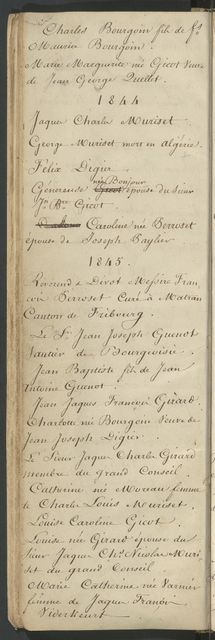 Charles Bourgoin fils de fs
Maurice Bourgoin.
Marie Marguerite née Gicot Veuve
de Jean George Quellet.
1844
Jaques Charles Muriset.
George Muriset mort en algérie.
Félix Digier
née Bonjour
Généreuse épouse du Sieur
Jn Bte Gicot.
Caroline née Berroset
épouse de Joseph Baylier
1845.
Révérend & Devot Messire Fran
çois Berroset Curé à Matran
Canton de Fribourg.
Le Sr Jean Joseph Guenot
Vautier de Bourgeoisie.
Jean Baptiste fils de Jean
Antoine Guenot.
Jean Jaques François Girard.
Charlotte née Bourgoin Veuve de
Jean Joseph Digier.
Le Sieur Jaques Charles Girard
membre du grand Conseil
Catherine née Moreau femme
de Charles Louis Muriset.
Louise Caroline Gicot.
Louise née Girard épouse du
Sieur Jaques Chs Nicolas Muri
set du grand Conseil
Marie Catherine née Varnier
femme de Jaques François